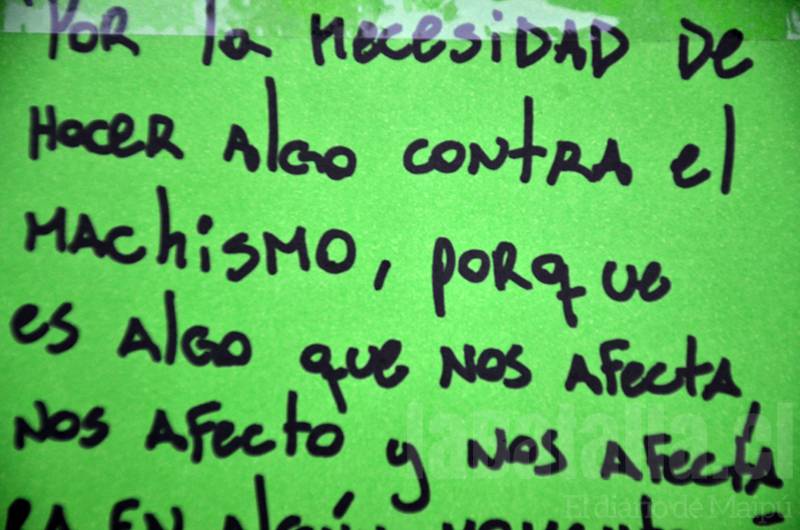 Por la necesidad de
hacer algo contra el
machismo, porque
es algo que nos afecta,
nos afecto y nos afecta
ra en algún
labatalla.cl
El diario de Maipú